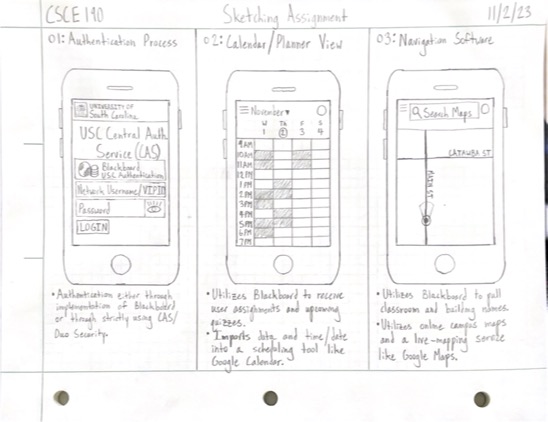 CSCE 190
Sketching Assignment
11/2/23
01: Authentication Process
UNIVERSITY OF
South Carolina
USC Central Auth
Service (CAS)
Blackboard
USC Authentication
Network Username/VIP ID
Password
LOGIN
• Authentication either through
implementation of Blackboard
or through strictly using CAS/
Duo Security.
02: Calendar/Planner View
November▾
W Th F S
1 2 3 4
9AM
10AM
11AM
12PM
1PM
2PM
3PM
4PM
5PM
6PM
7PM
• Utilizes Blackboard to receive
user assignments and upcoming
quizzes.
• Imports data and time/date
into a scheduling tool like
Google Calendar.
03: Navigation Software
Search Maps
CATAWBA ST
MAIN ST
• Utilizes Blackboard to pull
classroom and building names.
• Utilizes online campus maps
and a live-mapping service
like Google Maps.